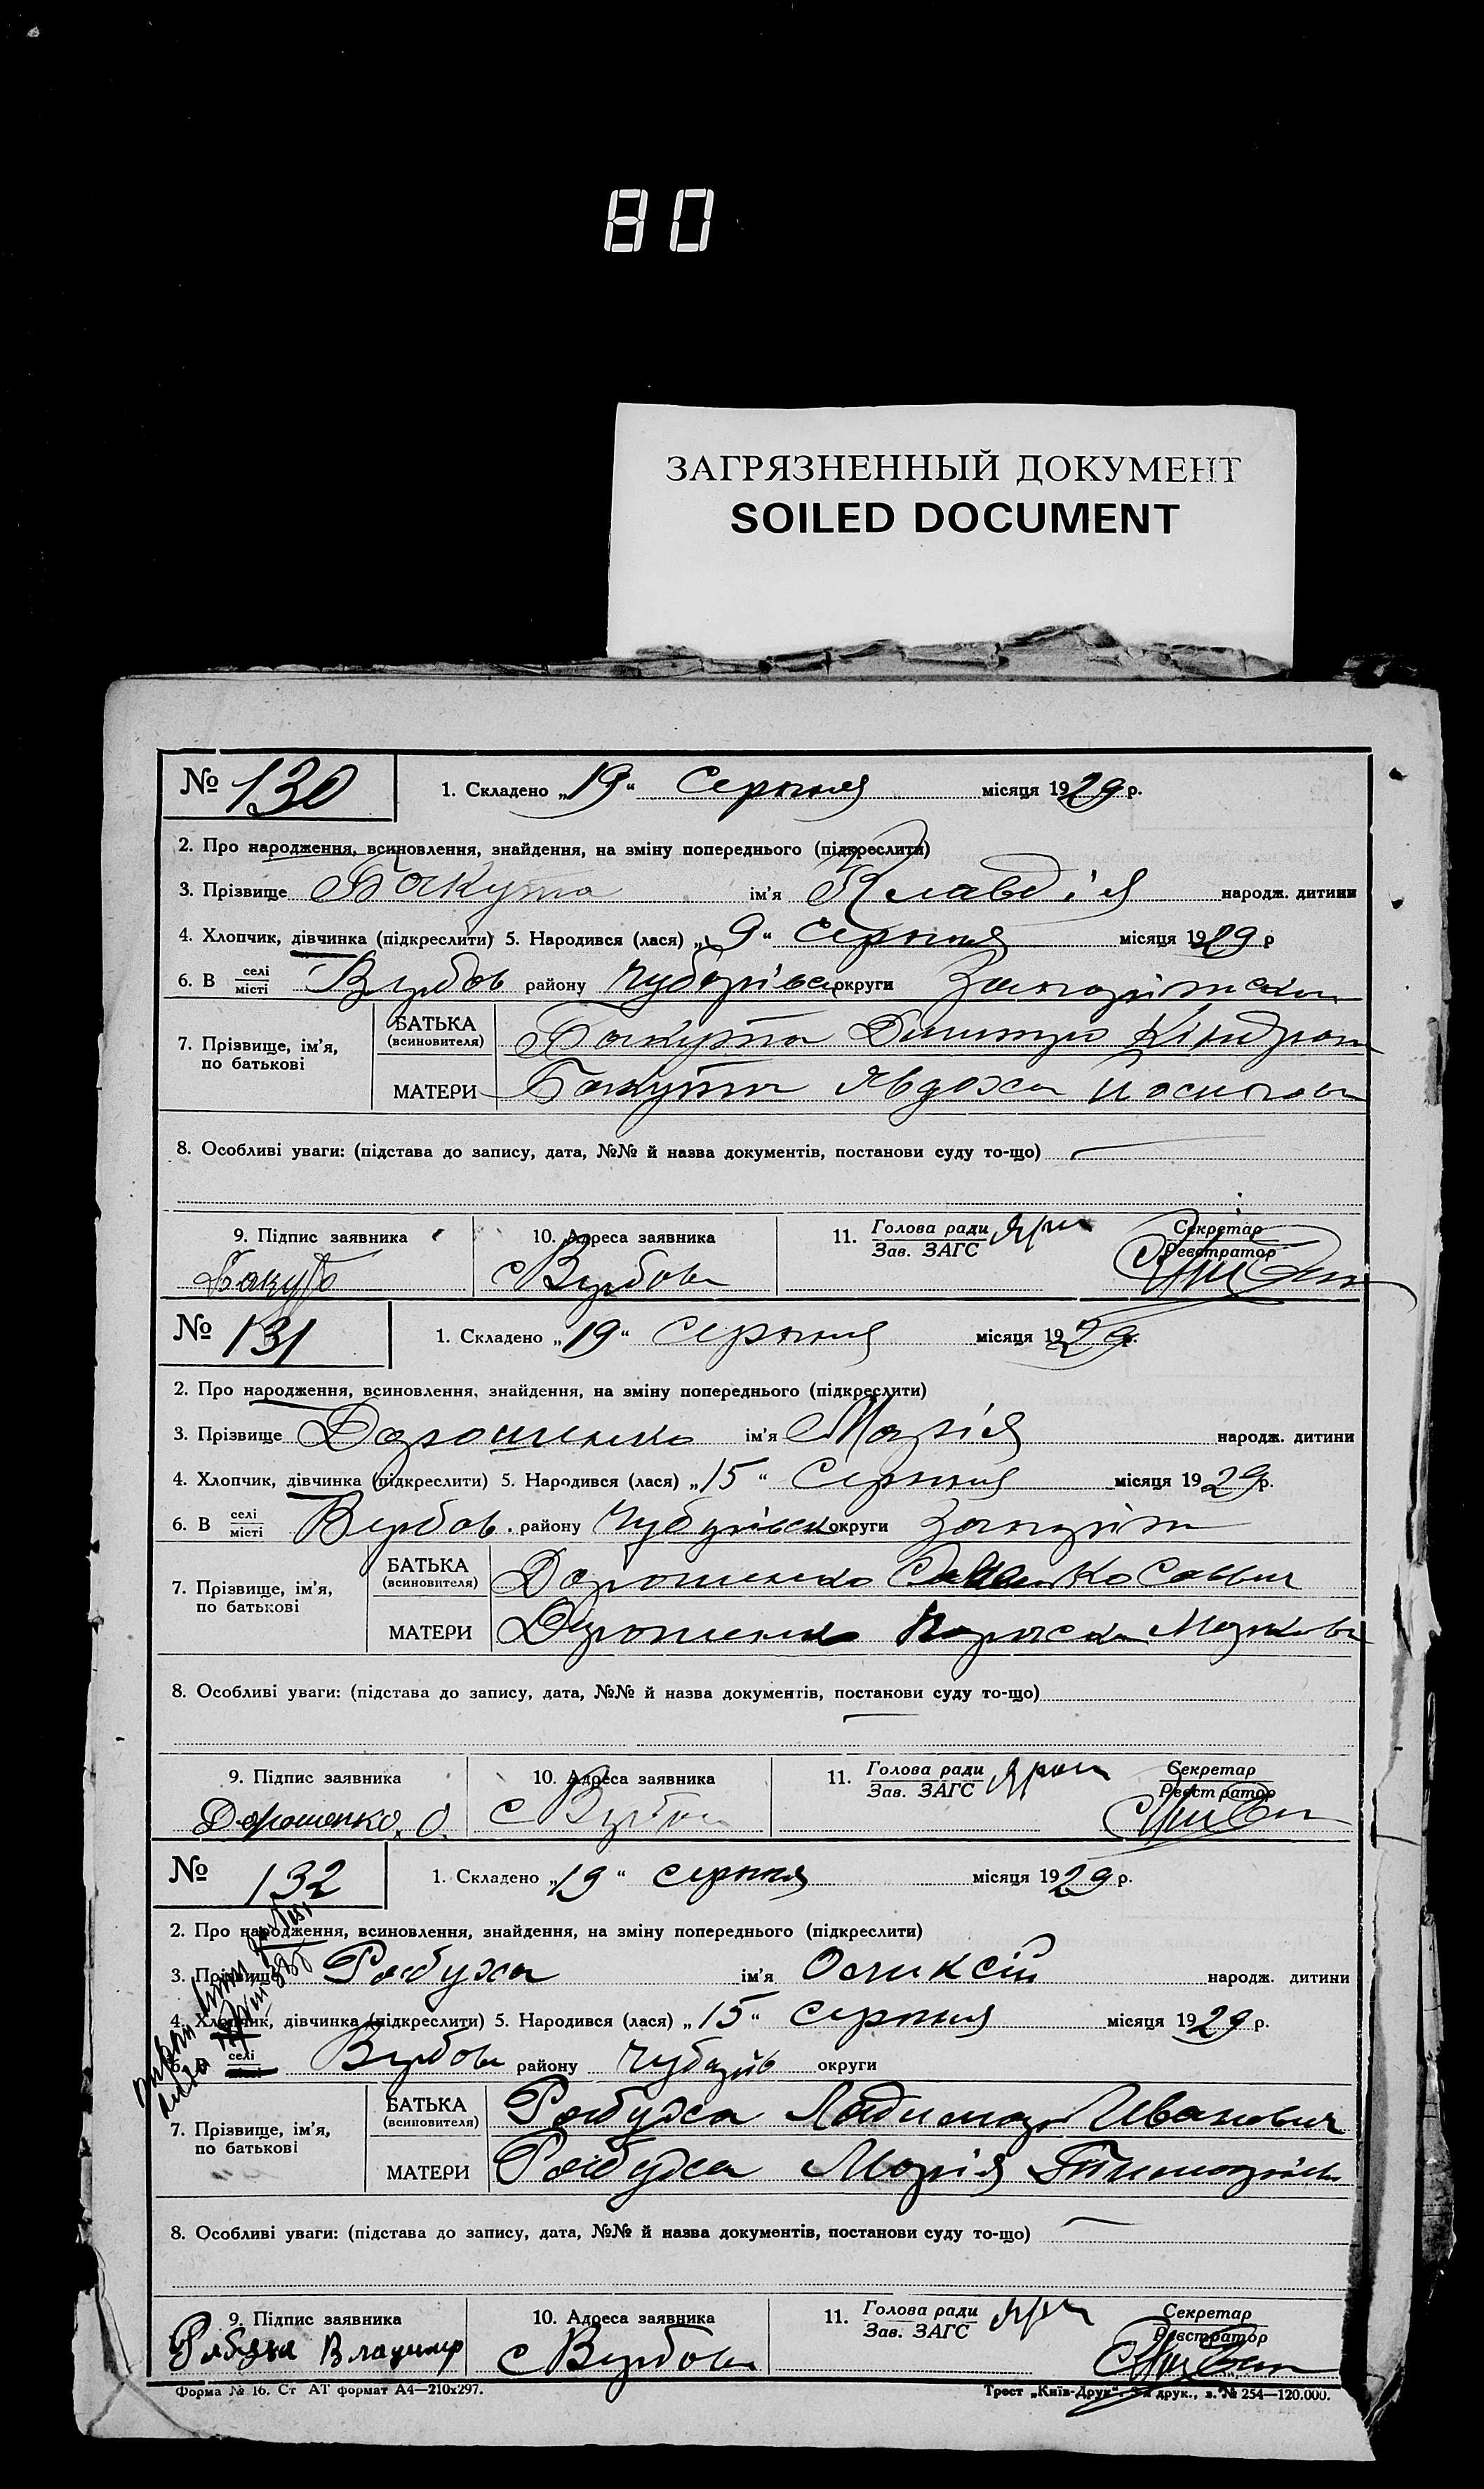 80
ЗАГРЯЗНЕННЫЙ ДОКУМЕНТ
SOILED DOCUMENT
№ 130 1. Складено „19“ Серпня місяця 1929 р.
2. Про народження, всиновлення, знайдення, на зміну попереднього (підкреслити)
3. Прізвище Бакута ім'я Клавдія народж. дитини
4. Хлопчик, дівчинка (підкреслити) 5. Народився (лася) „9“ Серпня місяця 1929 р
6. В селі місті Вербов району Чубарівск округи Запоріжск
7. Прізвище, ім'я, по батькові
БАТЬКА (всиновителя) Бакута Дмитро Кіндрат
МАТЕРИ Бакута Явдоха Йосипов
8. Особливі уваги: (підстава до запису, дата, №№ й назва документів, постанови суду то-що)
9. Підпис заявника 10. Адреса заявника 11. Голова ради Зав. ЗАГС Секретар Реєстратор
Бакута с Вербова
№ 131 1. Складено „19“ Серпня місяця 1929 р.
2. Про народження, всиновлення, знайдення, на зміну попереднього (підкреслити)
3. Прізвище Дорошенко ім'я Марія народж. дитини
4. Хлопчик, дівчинка (підкреслити) 5. Народився (лася) „15“ Серпня місяця 1929 р.
6. В селі місті Вербов. району Чубарівск округи Запоріж
7. Прізвище, ім'я, по батькові
БАТЬКА (всиновителя) Дорошенко Саввич
МАТЕРИ Дорошенко Параска Маркова
8. Особливі уваги: (підстава до запису, дата, №№ й назва документів, постанови суду то-що)
9. Підпис заявника 10. Адреса заявника 11. Голова ради Зав. ЗАГС Секретар Реєстратор
Дорошенко. О. с Вербов
№ 132 1. Складено „19“ серпня місяця 1929 р.
2. Про народження, всиновлення, знайдення, на зміну попереднього (підкреслити)
3. Прізвище Рябуха ім'я Олексій народж. дитини
4. Хлопчик, дівчинка (підкреслити) 5. Народився (лася) „15“ серпня місяця 1929 р.
6. В селі Вербов району Чубарів округи
7. Прізвище, ім'я, по батькові
БАТЬКА (всиновителя) Рябуха Іванович
МАТЕРИ Рябуха Марія
8. Особливі уваги: (підстава до запису, дата, №№ й назва документів, постанови суду то-що)
9. Підпис заявника 10. Адреса заявника 11. Голова ради Зав. ЗАГС Секретар Реєстратор
Рябуха Владимир с Вербова
Форма № 16. Ст АТ формат А4—210х297. Трест „Київ-Друк“, друк., з. № 254—120.000.